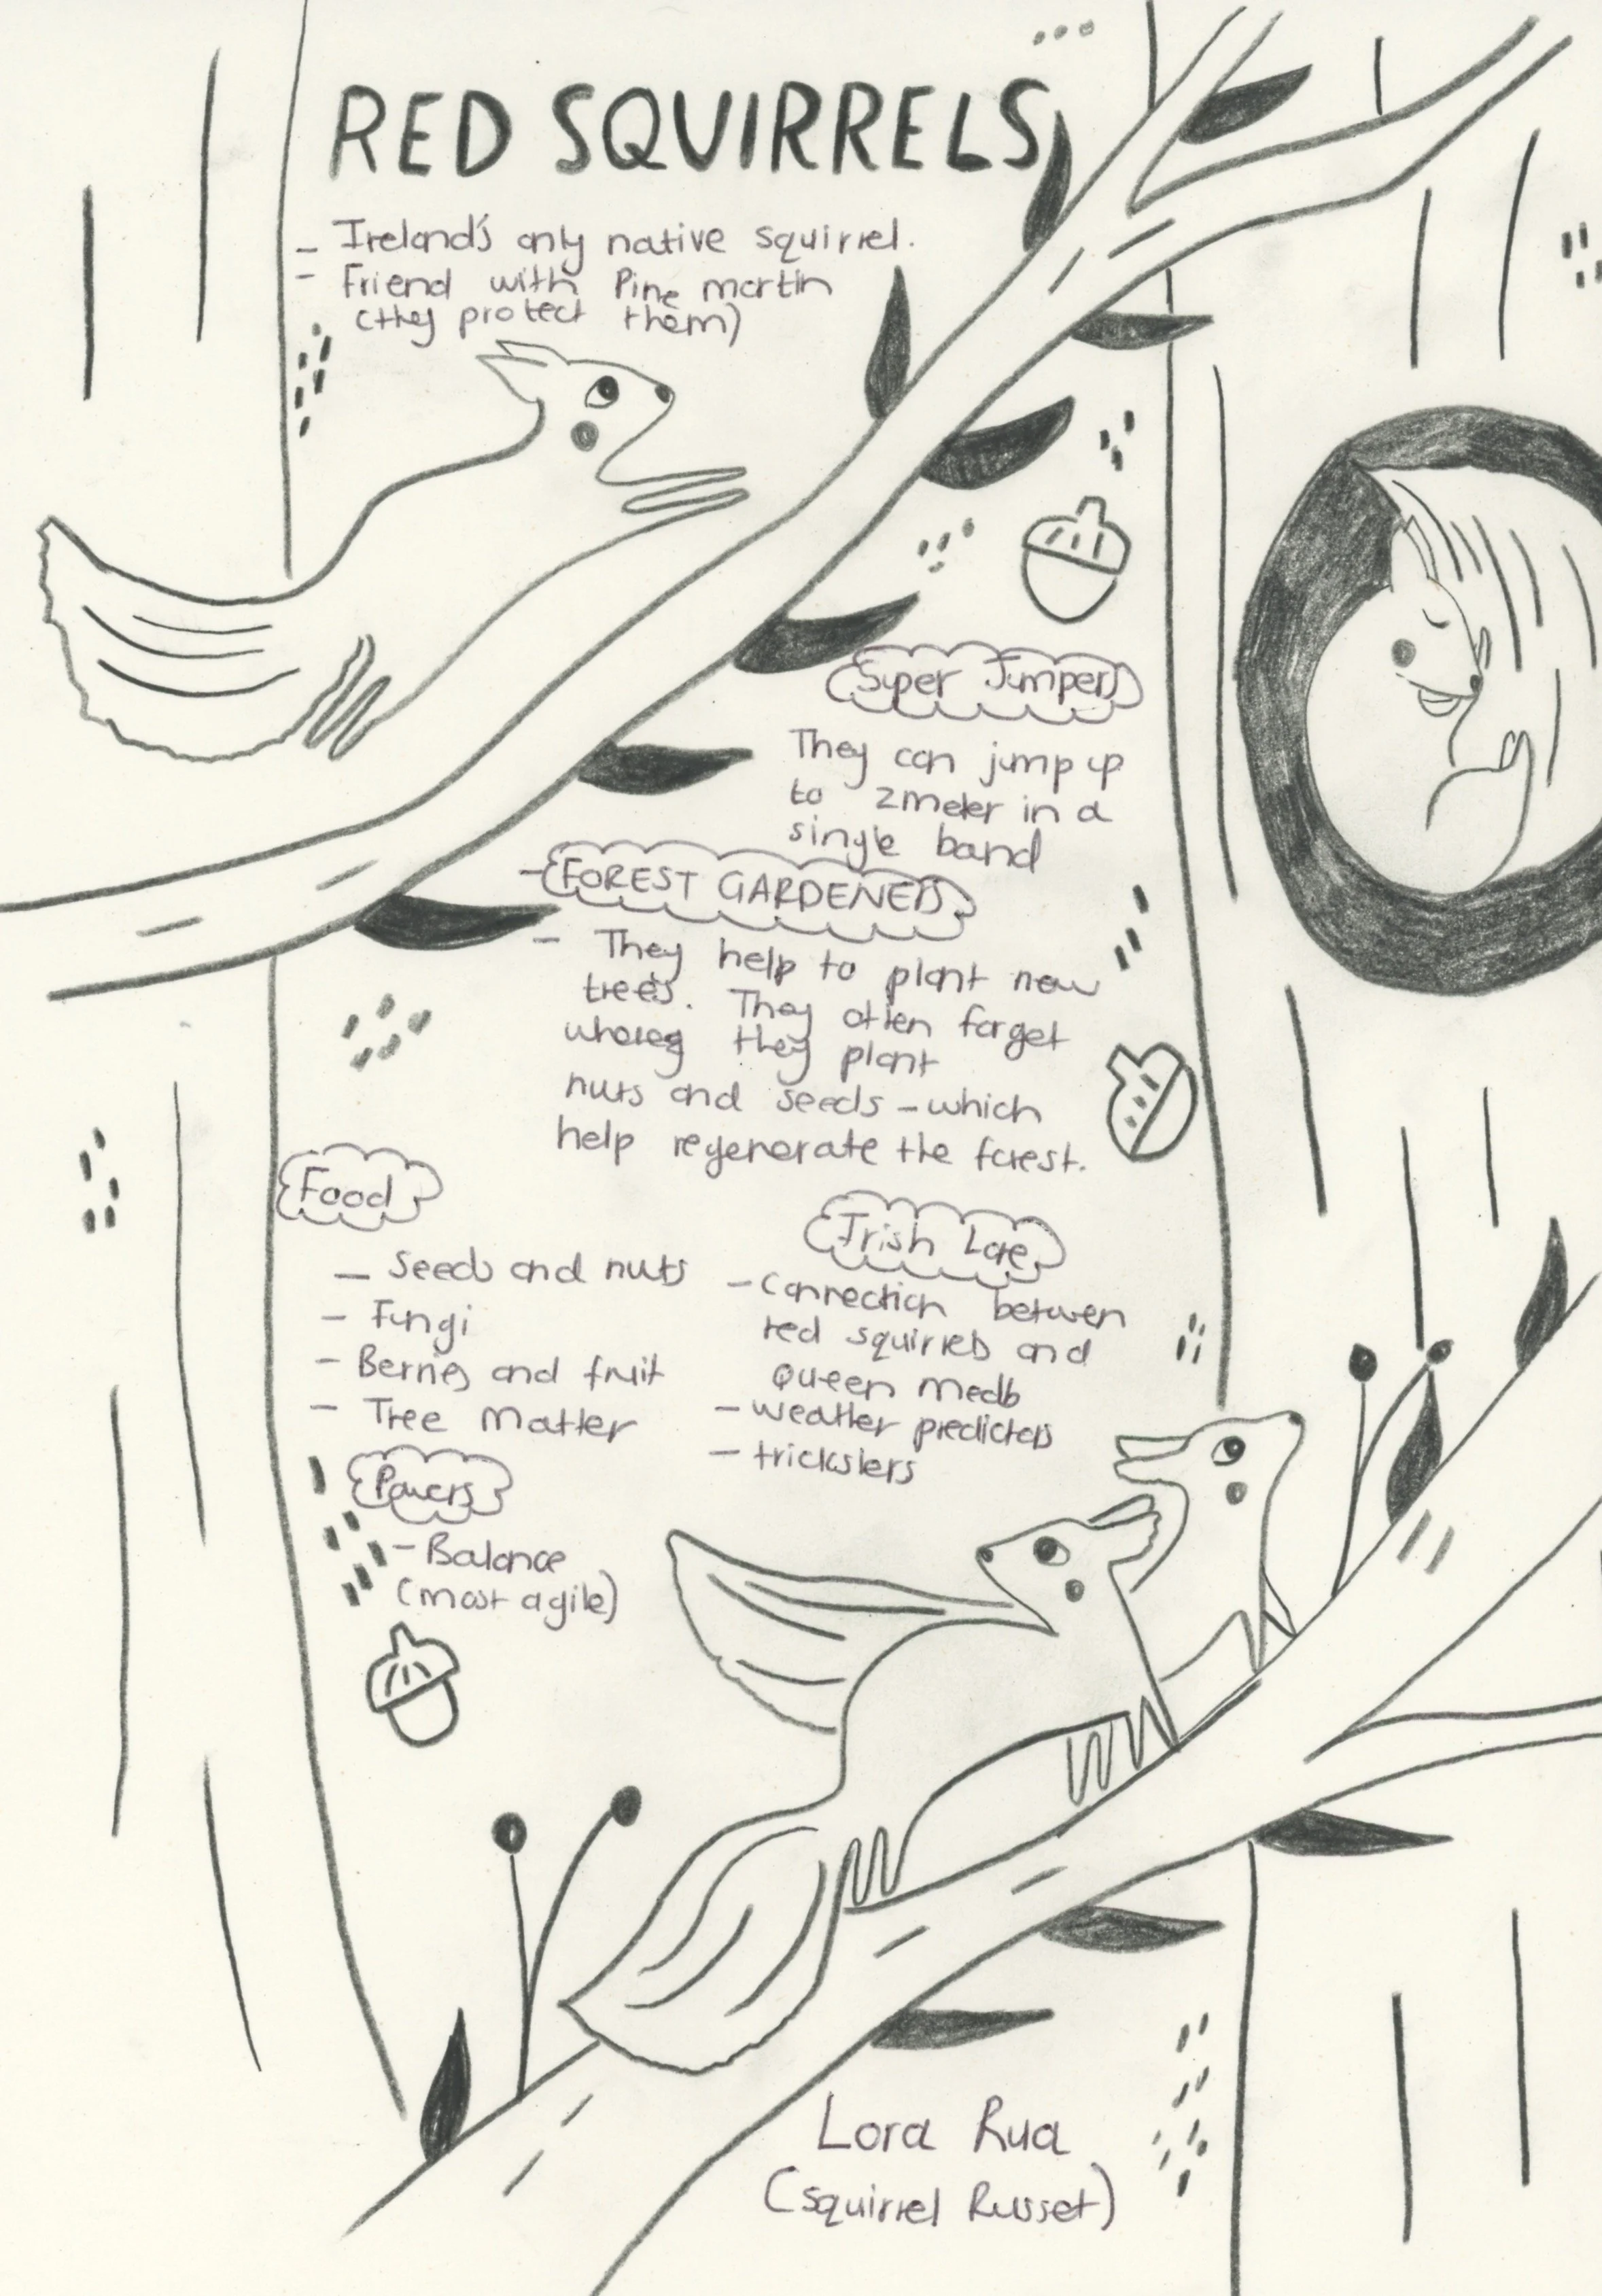 RED SQUIRRELS
- Ireland's only native squirrel.
- Friend with Pine martin
(they protect them)
Super Jumpers
They can jump up
to 2meter in a
single band
- FOREST GARDENERS
- They help to plant new
trees. They often forget
they plant
nuts and seeds - which
help regenerate the forest.
Food
- Seeds and nuts
- Fungi
- Berries and fruit
- Tree Matter
Irish Lore
- Connection between
red squirrels and
Queen Medb
- weather predictors
- tricksters
Powers
- Balance
(most agile)
Lora Rua
(Squirrel Russet)